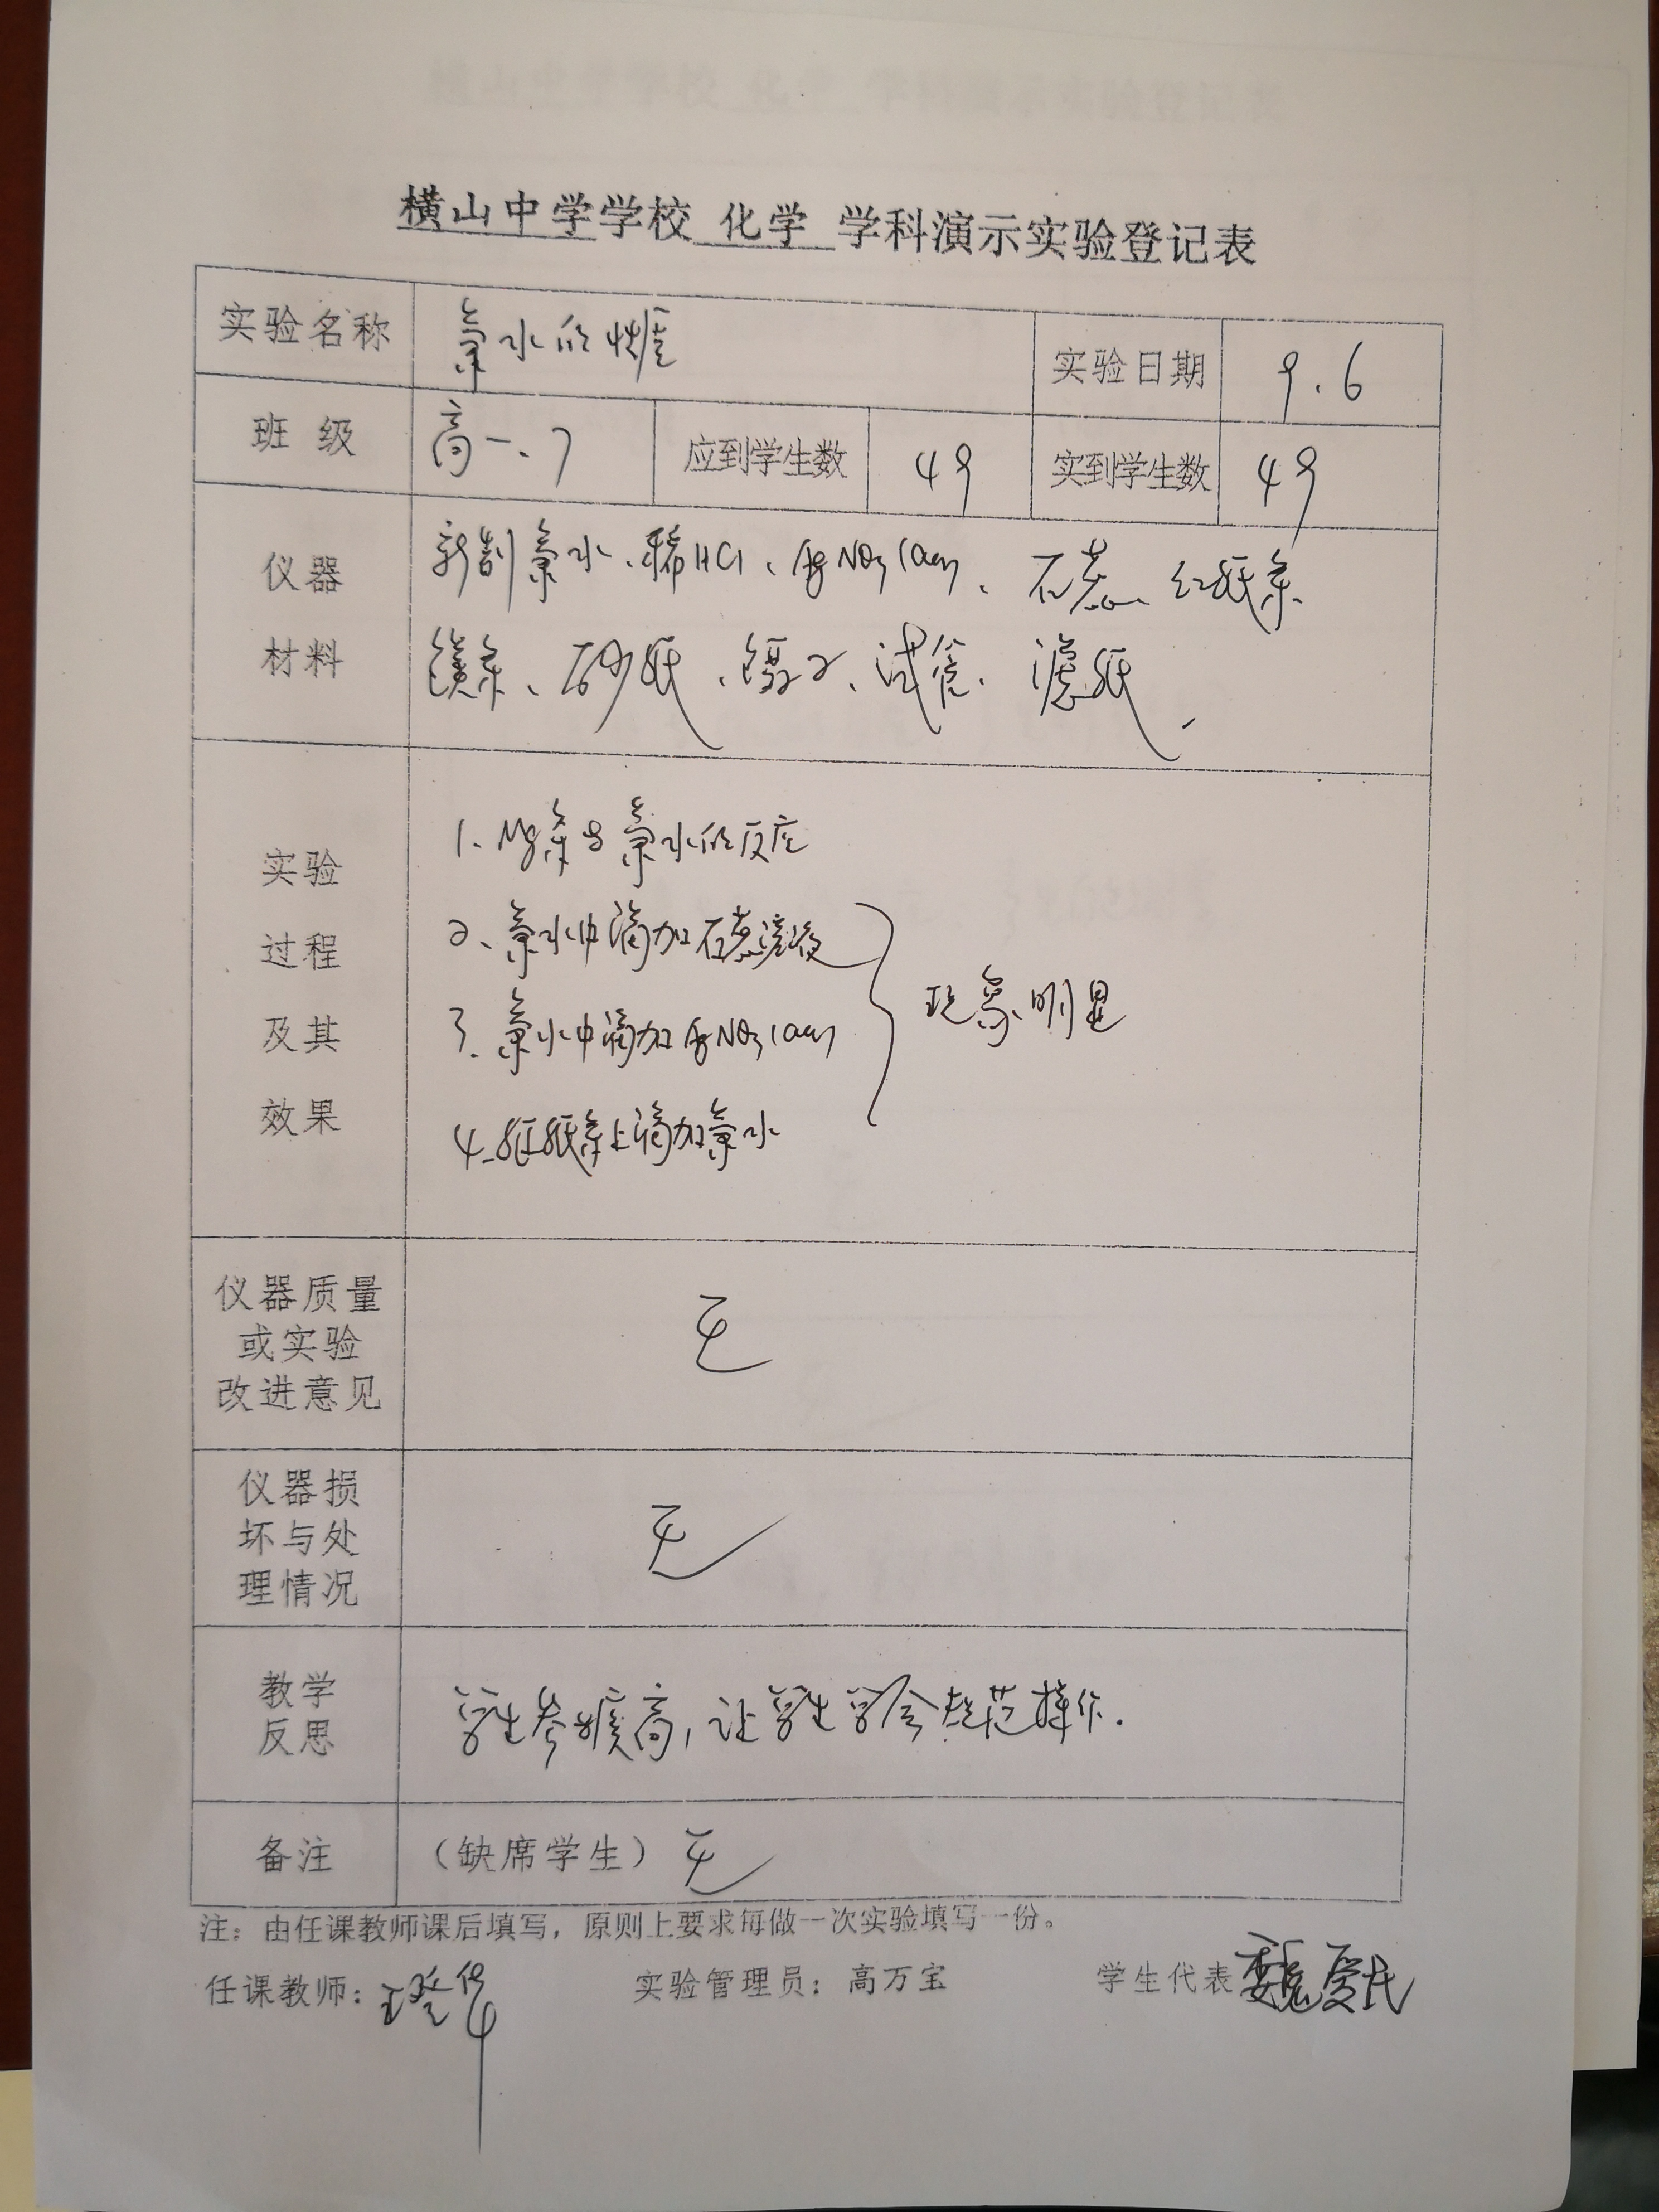 横山中学学校 化学 学科演示实验登记表
实验名称 氯水的性质 实验日期 9.6
班 级 高一.7 应到学生数 49 实到学生数 49
仪器 新制氯水、稀HCl、AgNO3(aq)、石蕊、红纸条、
材料 镁条、砂纸、镊子、试管、滤纸、
实验 1、Mg条与氯水的反应
过程 2、氯水中滴加石蕊溶液
及其 3、氯水中滴加AgNO3(aq) 现象明显
效果 4、红纸条上滴加氯水
仪器质量
或实验 无
改进意见
仪器损
坏与处 无
理情况
教学
反思 学生参与度高,让学生学会规范操作.
备注 (缺席学生) 无
注:由任课教师课后填写,原则上要求每做一次实验填写一份。
任课教师: 实验管理员:高万宝 学生代表 魏爱民